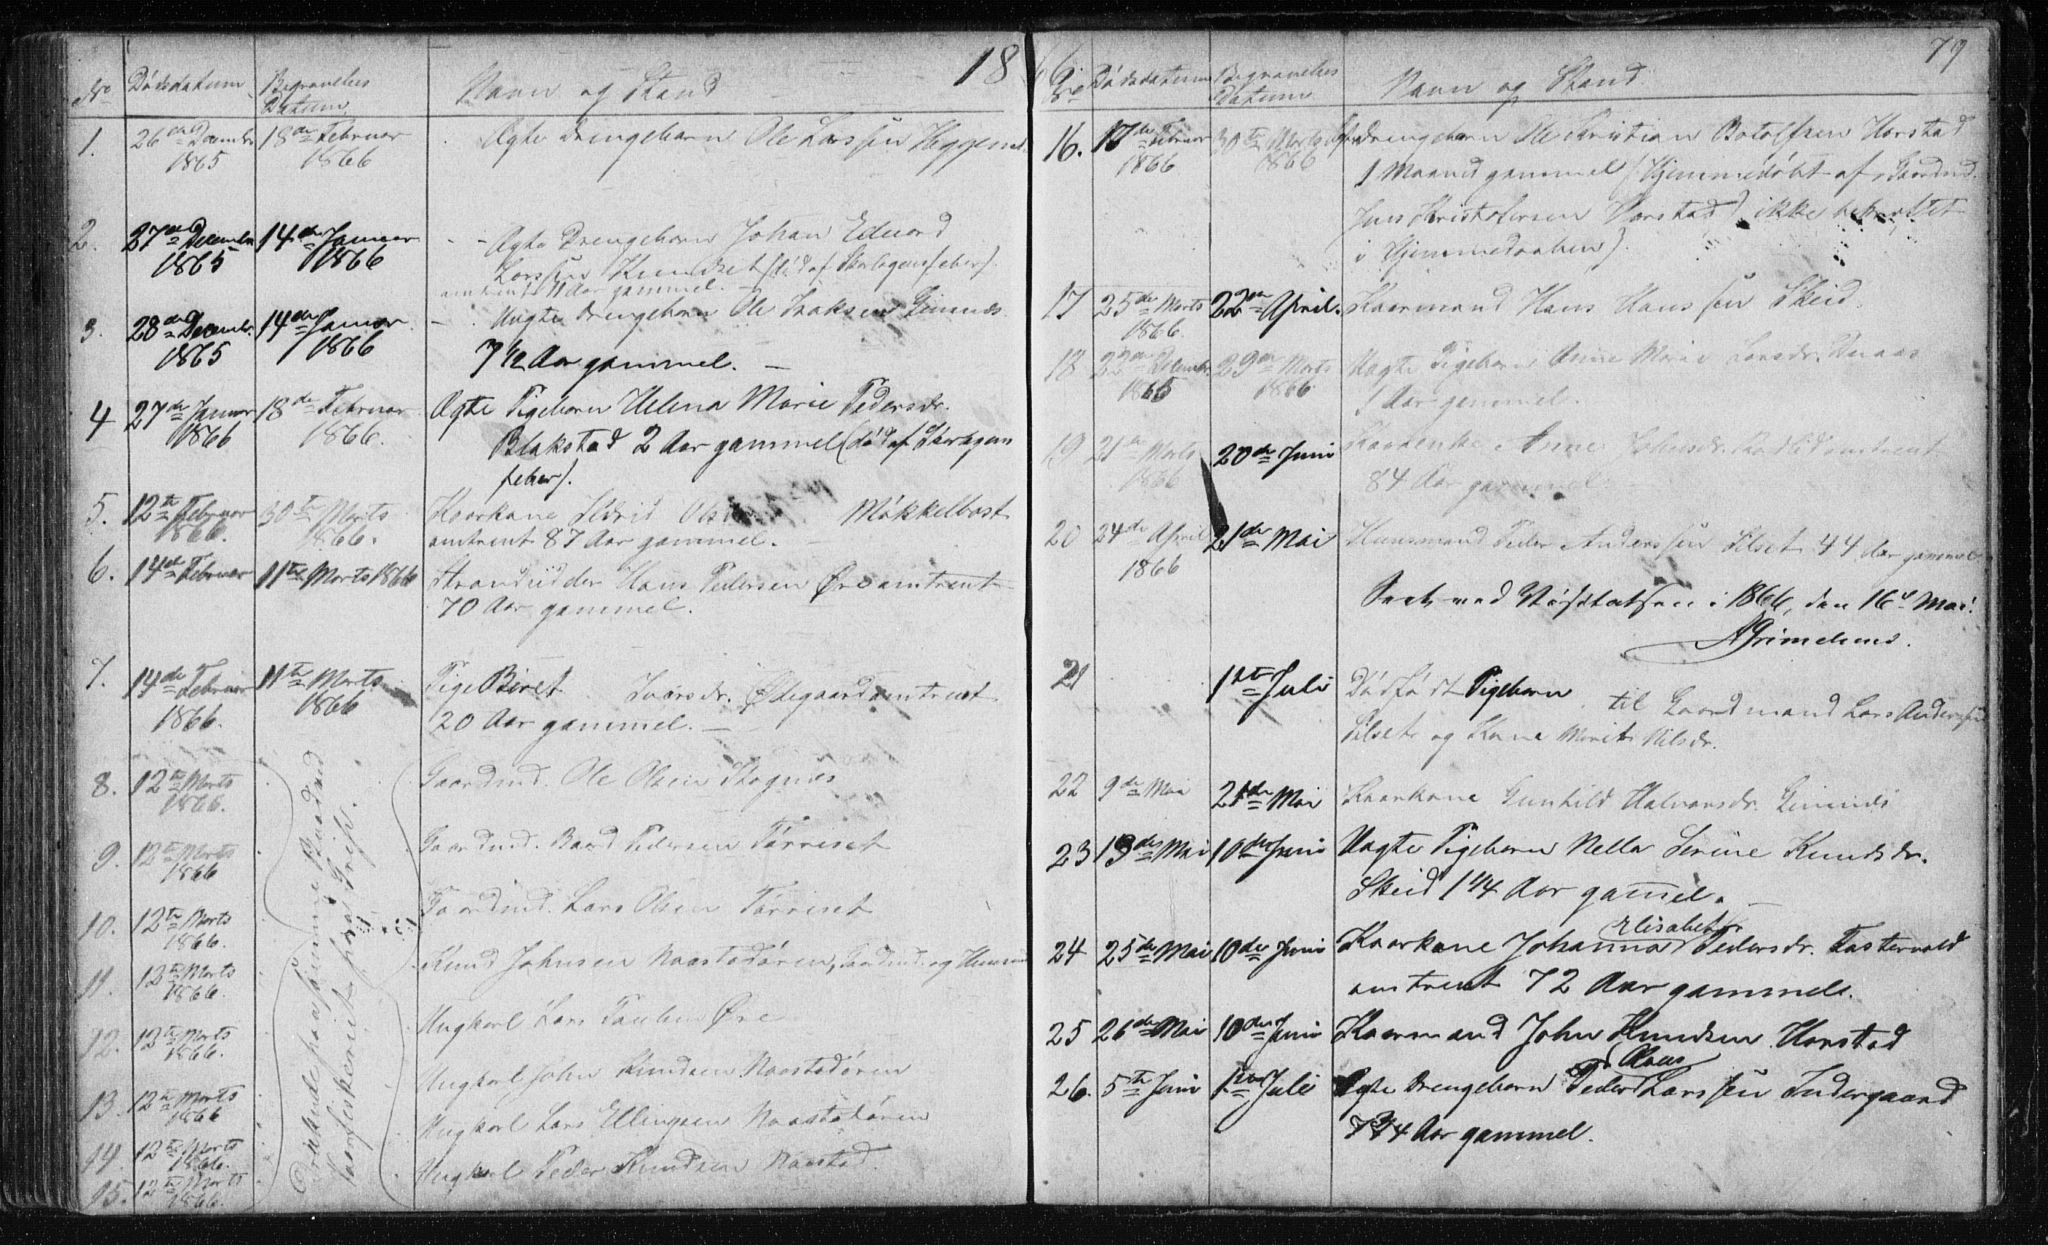 1866
79
No Dødsdatum Begravelses Datum Navn og Stand
1. 26de Decembr 1865 18de Februar 1866 Ægte Drengebarn Ole Larssen Heggem
2. 27de Decembr 1865 14de Januar 1866 Ægte Drengebarn Johan Eduard
Larssen (død af Skarlagensfeber)
omtrent 11 Aar gammel.
3. 28de Decembr 1865 14de Januar 1866 Uægte Drengebarn Ole Isaksen Gimnes
7 1/2 Aar gammel.
4 27de Januar 1866 18de Februar 1866. Ægte Pigebarn Helena Marie Pedersdr.
Blakstad 2 Aar gammel (død af Skarlagens
feber).
5. 12te Februar 1866. 30te Marts 1866. Kaarkone Sivrid Olsdr Møkkelbost
omtrent 87 Aar gammel.
6. 14de Februar 11te Marts 1866 Strandsidder Hans Pedersen Øre omtrent
70 Aar gammel.
7. 14de Februar 1866. 11te Marts 1866 Pige Beret Ivarsdr. Ødegaard omtrent
20 Aar gammel.
8. 12te Marts 1866. Gaardmd. Ole Olsen
9. 12te Marts 1866 Gaardmd. Baard Pedersen Tørriset
10. 12te Marts 1866. Gaardmd. Lars Olsen Tørriset
11. 12te Marts 1866. Knud Johnsen Naastadøren,
12. 12te Marts 1866. Ungkarl Lars Paulsen Øre
13. 12te Marts 1866 Ungkarl John Knudsen Naastadøren
14. 12te Marts 1866. Ungkarl Lars Ellingsen Naastadøren
15. 12te Marts 1866. Ungkarl Peder Knudsen Naastad.
Druknede paa sammen Baadred
Vaarfiskeriet fra Grip.
No Dødsdatum Begravelses datum Navn og Stand
16. 17de Februar 1866 30te Marts 1866 Ægte Drengebarn Ole Kristian Botolfsen Horstad
1 Maaned gammel (Hjemmedøbt af Gaardmd.
Jens Kristofersen Horstad) ikke bekræftet
i Hjemmedaaben).
17 25de Marts 1866. 22de April. Kaarmand Hans Hanssen Skeid.
18 22de Decembr. 1865 29de Marts 1866 Uægte Pigebarn Anne Marie Larsdr.
1 Aar gammel
19 21de Marts 1866 20de Juni Kaarenke Anne omtrent
84 Aar gammel
20 24de April 1866 21de Mai Huusmand Peder Anderssen Silset 44 Aar gammel
Seet ved Visitatsen i 1866, den 16de Mai.
AGrimelund.
21 1ste Juli Dødfødt Pigebarn til Gaardmand Lars Anderssen
Silset og Kone Marit Nilsdr.
22 9de Mai 21de Mai Kaarkone Gunhild Halvorsdr. Gimnes
23 13de Mai 10de Juni Uægte Pigebarn Nella Serine Knudsdr.
Skeid 1 1/4 Aar gamel.
24 25de Mai 10de Juni Kaarkone Johanna Elisabeth Pedersdr. Fostervold
omtrent 72 Aar gammel.
25 26de Mai 10de Juni Kaarmand John Knudsen Horstad
26. 5te Juni 1ste Juli Ægte Drengebarn Peder Claus Larssen Indergaard
7 3/4 Aar gammel.